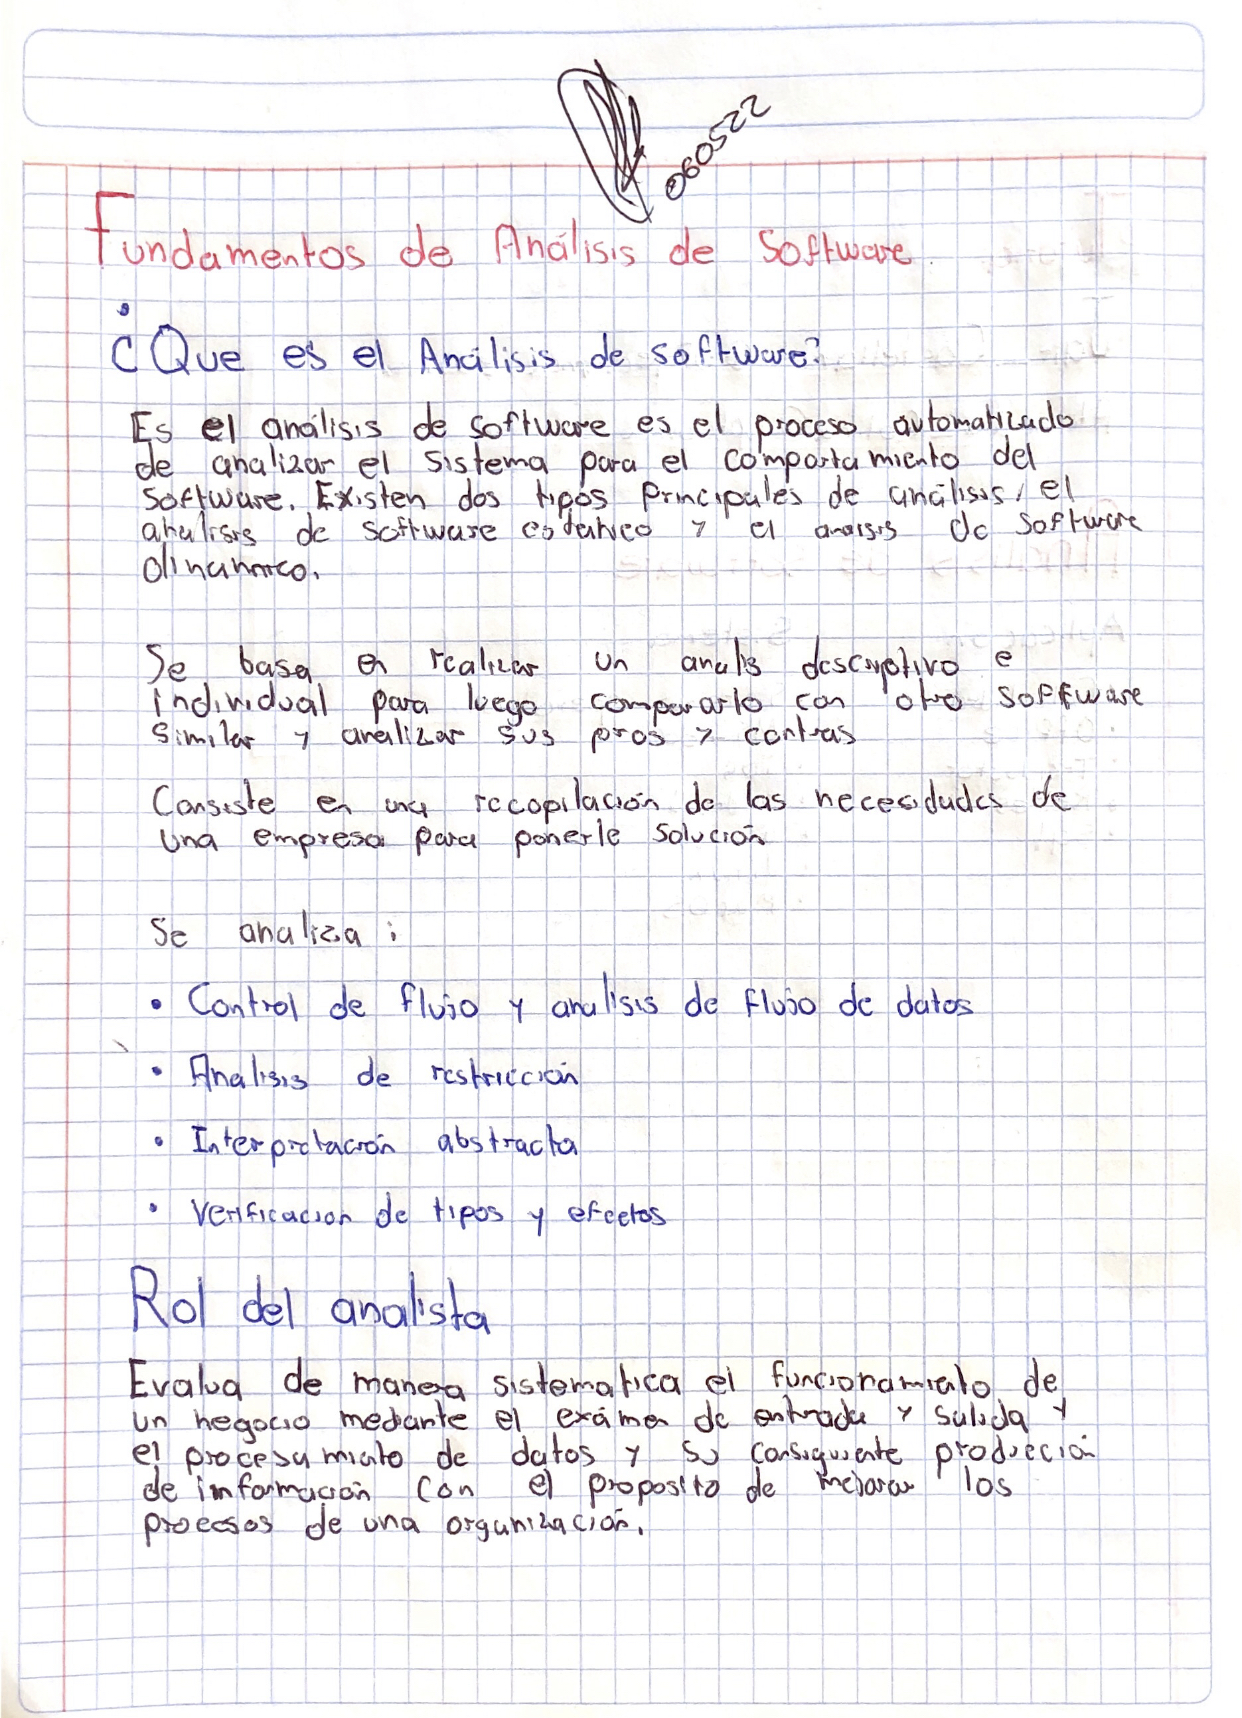 060522
Fundamentos de Análisis de Software
¿Que es el Análisis de software?
Es el análisis de software es el proceso automatizado
de analizar el sistema para el comportamiento del
software. Existen dos tipos principales de análisis, el
analisis de software estatico y el analsis de software
dinamico.
Se basa en realizar un analis descriptivo e
individual para luego compararlo con otro software
similar y analizar sus pros y contras
Consiste en una recopilación de las necesidades de
una empresa para ponerle solución
Se analiza :
• Control de flujo y analisis de flujo de datos
• Analisis de restricción
• Interpretación abstracta
• Verificacion de tipos y efectos
Rol del analista
Evalua de manera sistematica el funcionamiento de
un negocio mediante el exámen de entrada y salida y
el procesamiento de datos y su consiguiente producción
de información con el proposito de mejorar los
procesos de una organización.